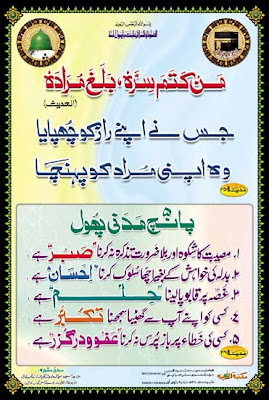 مَنْ كَتَمَ سِرَّهٗ، بَلَغَ مُرَادَهٗ
(الحدیث)
جس نے اپنے راز کو چھپایا
وہ اپنی مُراد کو پہنچا
پانچ مدنی پھول
۱. مصیبت کا شکوہ اور بلا ضرورت تذکرہ نہ کرنا "صبر" ہے
۲. بدلہ کی خواہش کے بغیر اچھا سلوک کرنا "اِحسَان" ہے
۳. غصّہ پر قابو پالینا "حِلم" ہے
۴. کسی کو اپنے آپ سے گھٹیا سمجھنا "تکبُّر" ہے
۵. کسی کی خطاء پر باز پُرس نہ کرنا "عفو و درگزر" ہے